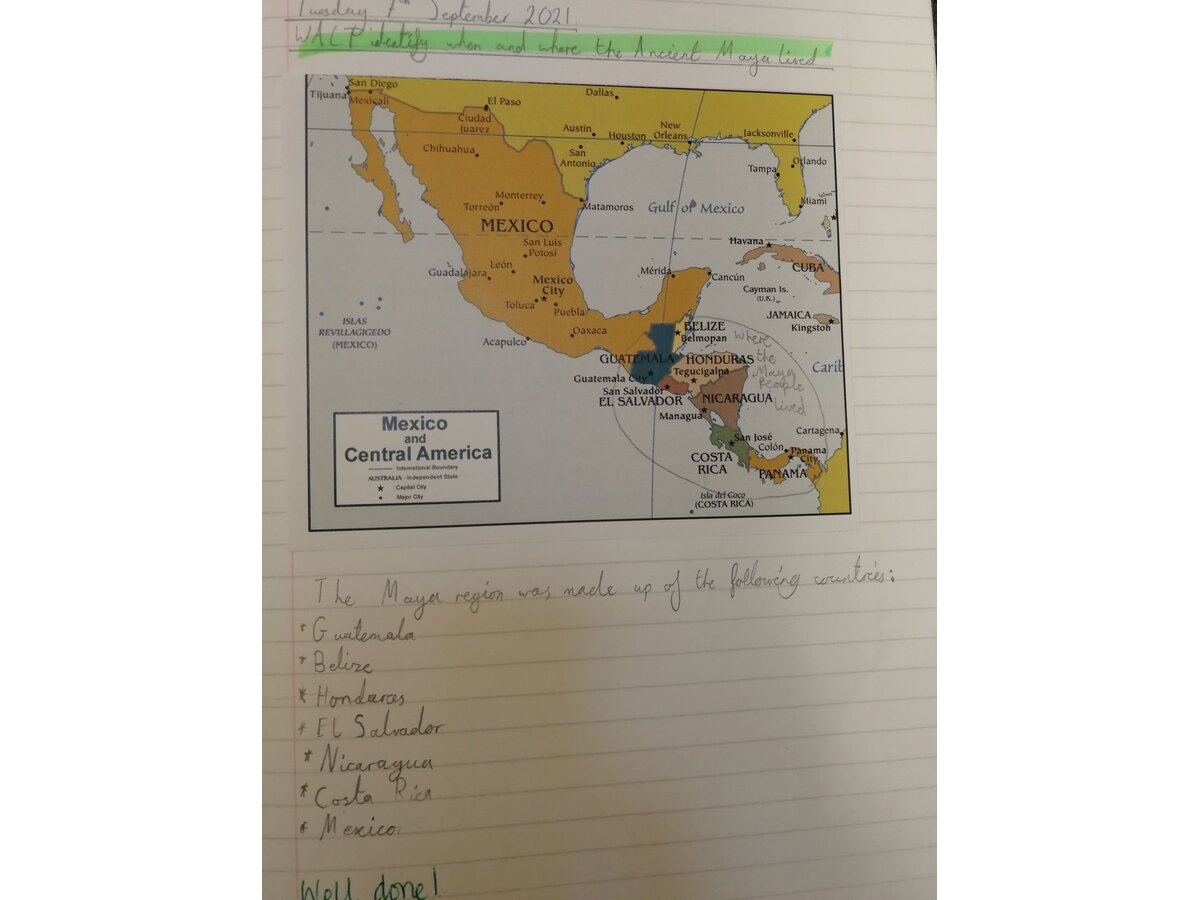 Tuesday 7th September 2021
WALT identify when and where the Ancient Maya lived
San Diego
Tijuana
Mexicali
El Paso
Ciudad
Juarez
Dallas
Austin
Houston
New
Orleans
Jacksonville
San
Antonio
Chihuahua
Orlando
Tampa
Monterrey
Torreón
Matamoros
Gulf of Mexico
Miami
MEXICO
San Luis
Potosí
Havana
CUBA
León
Guadalajara
Mérida
Cancún
Mexico
City
Cayman Is.
(U.K.)
Toluca
Puebla
JAMAICA
Kingston
ISLAS
REVILLAGIGEDO
(MEXICO)
Acapulco
Oaxaca
BELIZE
Belmopan
where
the
Maya
People
lived
GUATEMALA
HONDURAS
Tegucigalpa
Carib
Guatemala City
San Salvador
EL SALVADOR
NICARAGUA
Managua
Cartagena
San José
Colón
Panama
City
COSTA
RICA
PANAMA
Isla del Coco
(COSTA RICA)
Mexico
and
Central America
International Boundary
AUSTRALIA - Independent State
Capital City
Major City
The Maya region was made up of the following countries:
* Guatemala
* Belize
* Honduras
* El Salvador
* Nicaragua
* Costa Rica
* Mexico.
Well done!